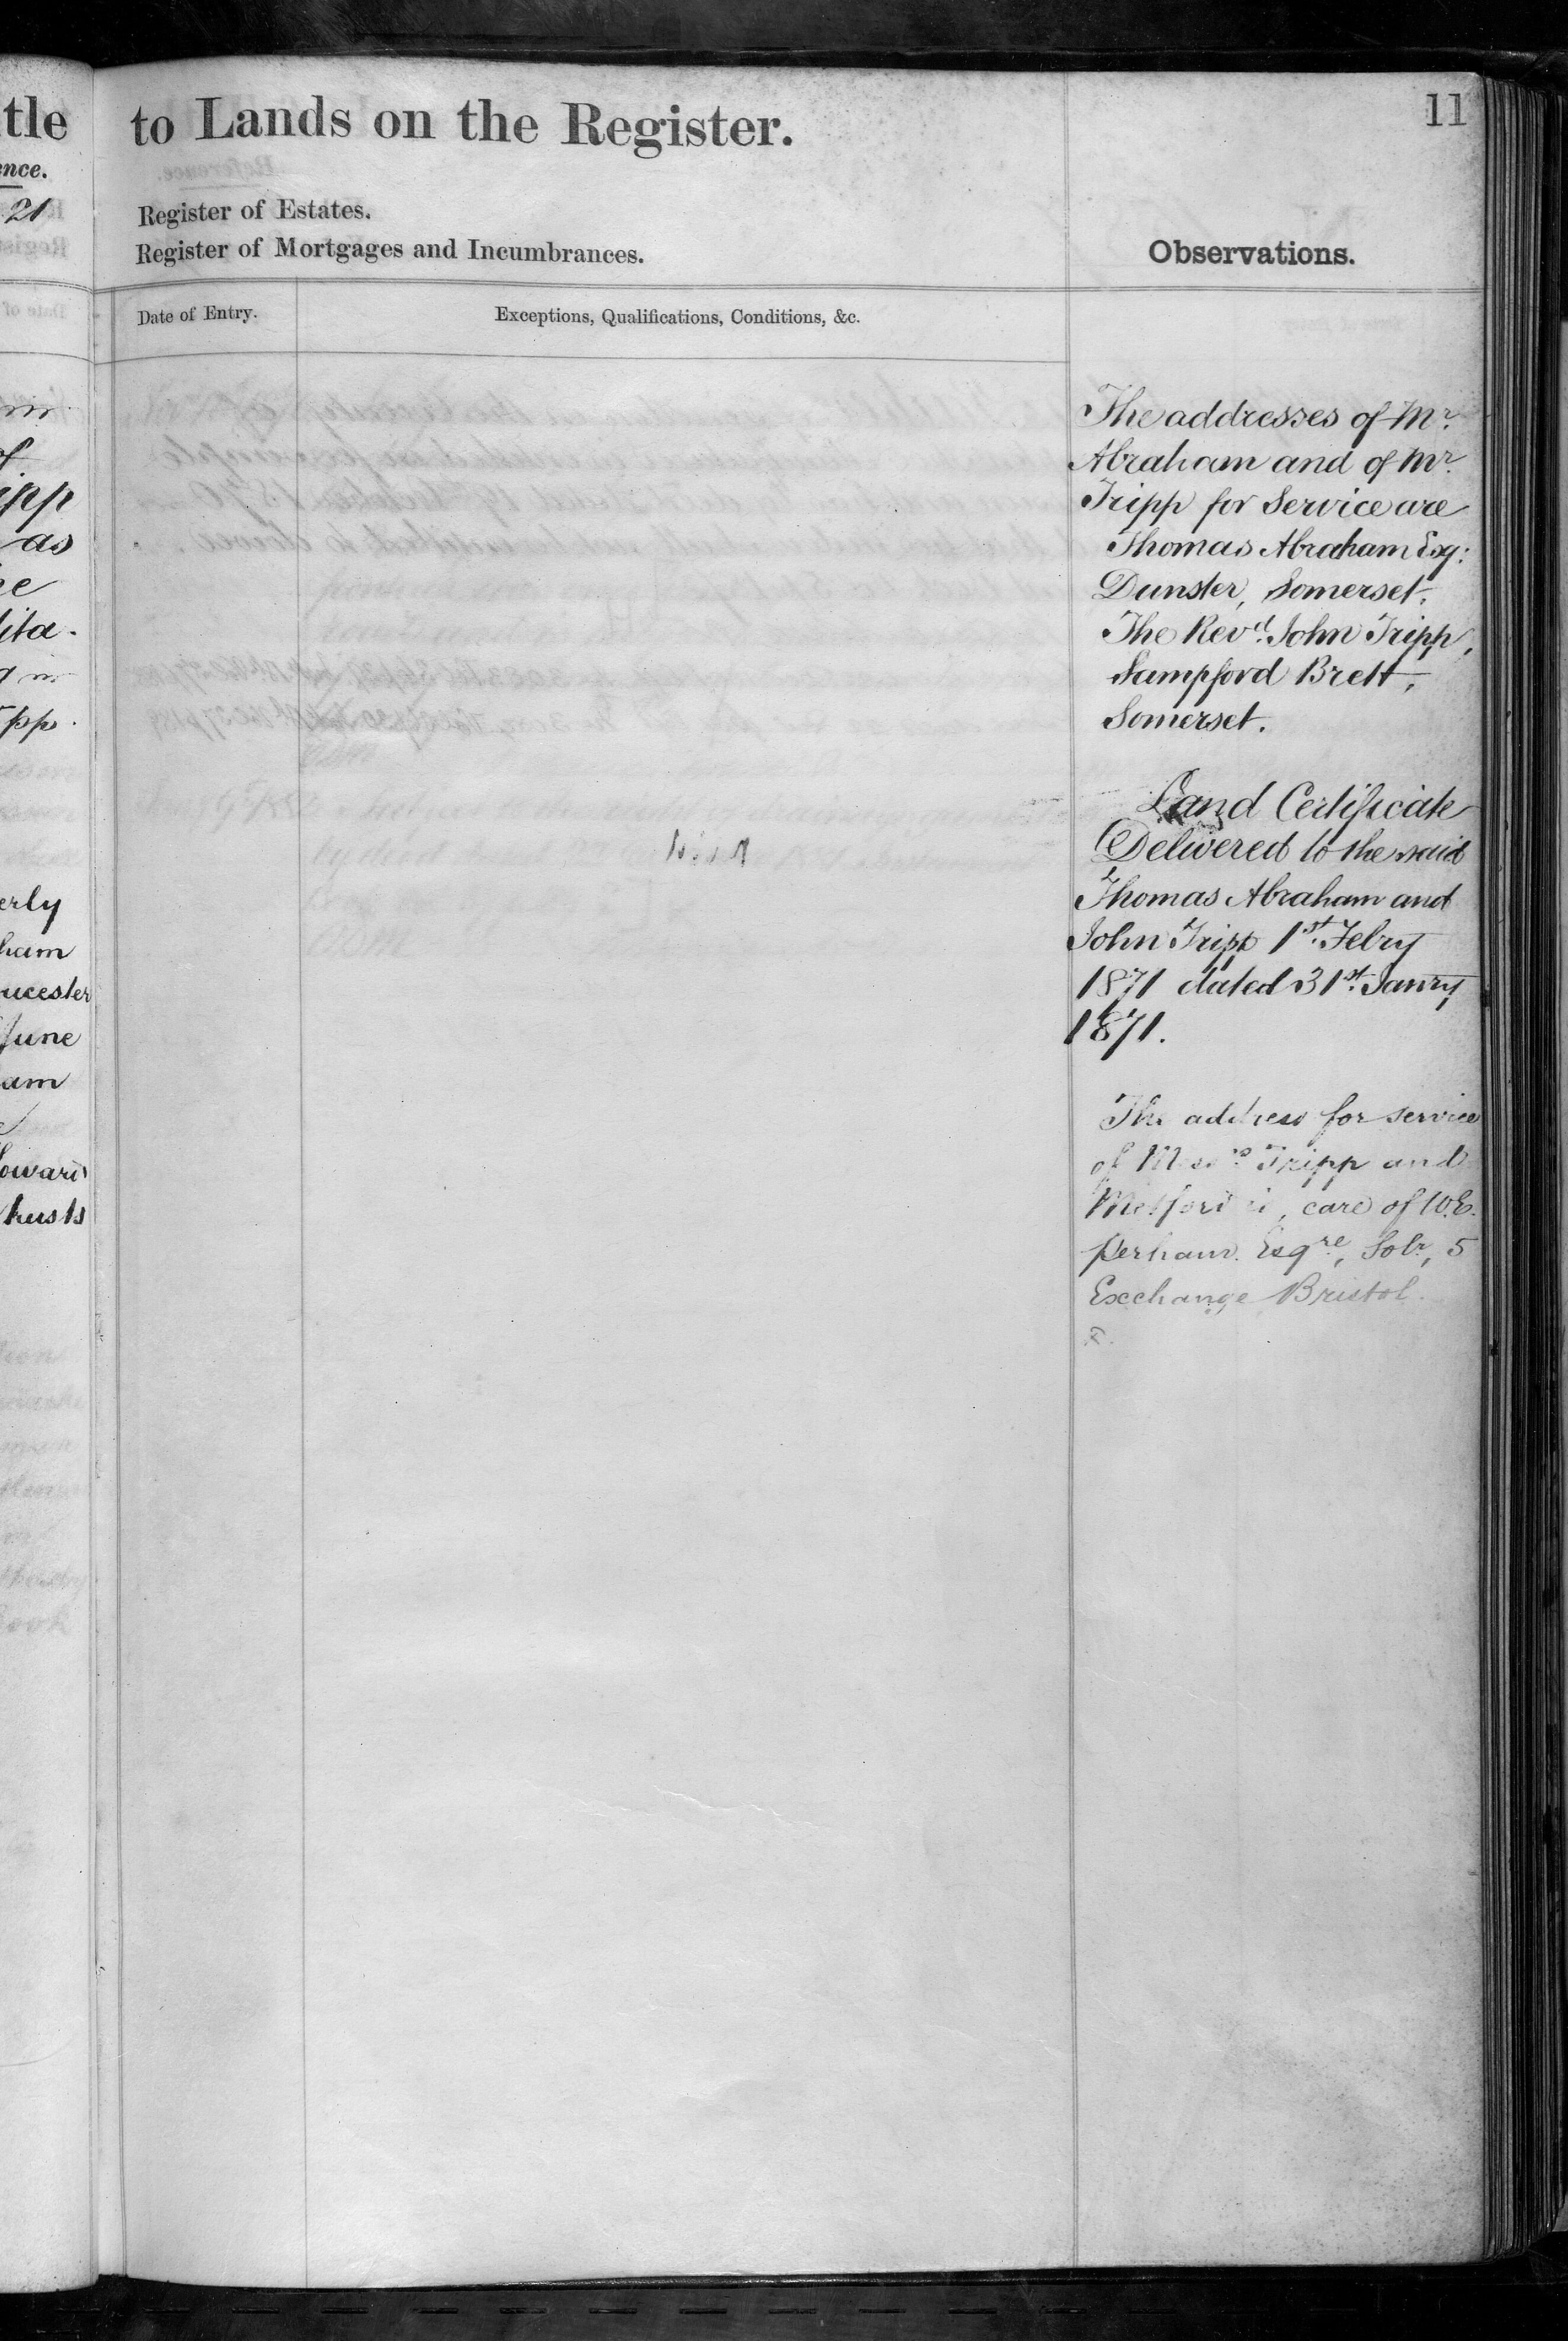 tle
ence.
21
of
ipp
as
erly
ham
ucester
June
am
toward
trusts
to Lands on the Register.
11
Register of Estates.
Register of Mortgages and Incumbrances.
Observations.
Date of Entry.
Exceptions, Qualifications, Conditions, &c.
The addresses of Mr.
Abraham and of Mr.
Tripp for Service are
Thomas Abraham Esq:
Dunster, Somerset.
The Revd. John Tripp,
Sampford Brett,
Somerset.
Land Certificate
Delivered to the said
Thomas Abraham and
John Tripp 1st. Febry
1871 dated 31st. Janry
1871.
The address for service
of Messrs Tripp and
Metford is, care of W.E.
Perham. Esqre, Solr, 5
Exchange Bristol.